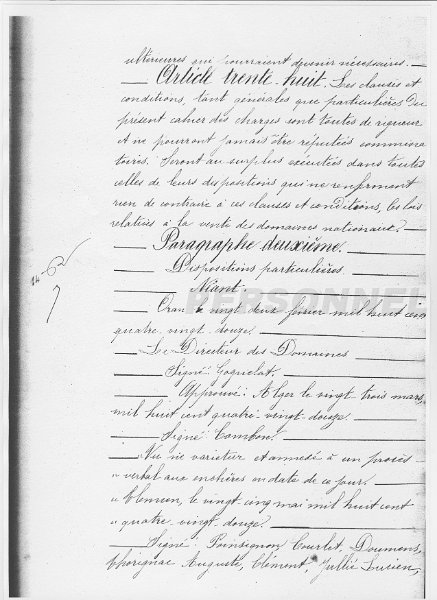 ultérieures qui pourraient devenir nécessaires.
Article trente-huit. Les clauses et
conditions, tant générales que particulières du
présent cahier des charges sont toutes de rigueur
et ne pourront jamais être réputées commina
toires. Seront au surplus exécutées dans toutes
celles de leurs dispositions qui ne renferment
rien de contraire à ces clauses et conditions, les lois
relatives à la vente des domaines nationaux.
Paragraphe deuxième.
Dispositions particulières.
Néant.
PERSONNEL
Oran le vingt deux février mil huit cent
quatre-vingt-douze.
Le Directeur des Domaines
Signé: Goguelat.
Approuvé: Alger le vingt trois mars
mil huit cent quatre-vingt-douze.
Signé: Cambon.
"Vu ne varietur et annexé à un procès-
"verbal aux enchères en date de ce jour.
"Tlemcen, le vingt-cinq mai mil huit cent
"quatre-vingt-douze.
Signé: Poinsignon, Courlet, Doumens,
Auguste, Clément, Jullié Lucien,